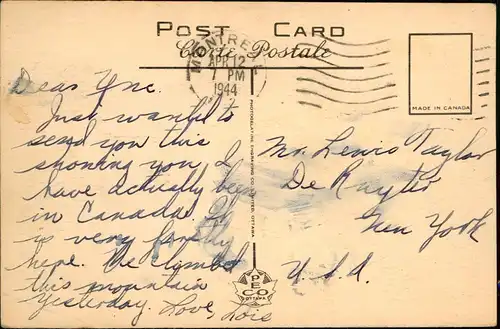 POST CARD
Carte Postale
MONTREAL
APR 12
7 PM
1944
MADE IN CANADA
Dear Unc.
Just wanted to
send you this
showing you I
have actually been
in Canada. It
is very
here. We climbed
this mountain
yesterday. Love, Lois
PHOTOGELATINE ENGRAVING CO. LIMITED, OTTAWA
PECO
OTTAWA
Mr. Lewis Taylor
De Ruyter
New York
U.S.A.